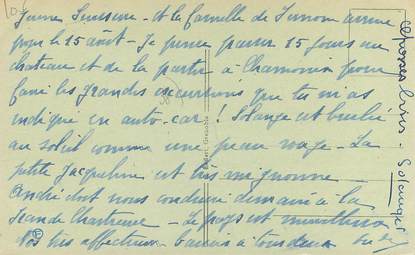 Jeune Suissesse - et la famille de Simone arrive
pour le 15 août - Je pense passer 15 jours au
chateau et de là partir à Chamonix pour
faire les grandes excursions que tu m'as
indiqué en auto-car ! Solange est brulée
au soleil comme une peau rouge - La
petite Jacqueline est très mignonne -
André doit nous conduire demain à la
Grande Chartreuse - Le pays est merveilleux
Nos très affectueux baisers à tous deux
Solange